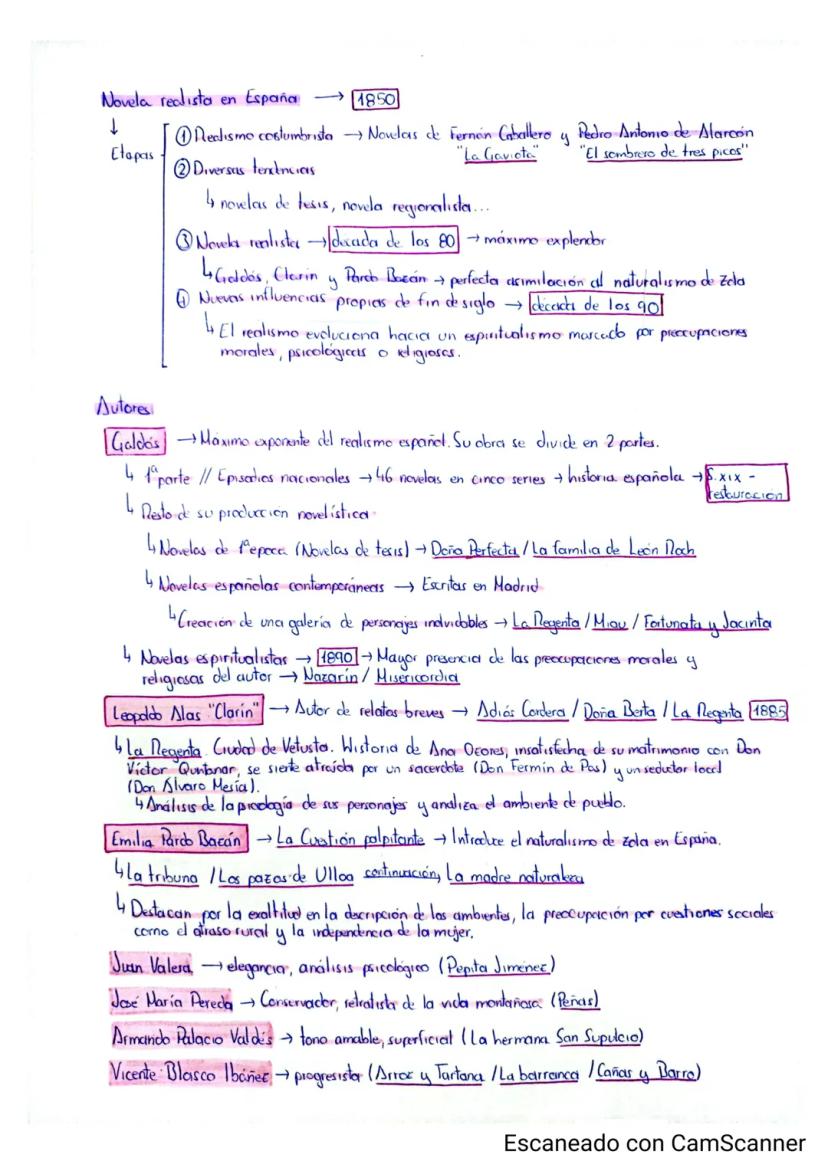 Novela realista en España → 1850
↓
Etapas
① Realismo costumbrista → Novelas de Fernán Caballero y Pedro Antonio de Alarcón
"La Gaviota" "El sombrero de tres picos"
② Diversas tendencias
↳ novelas de tesis, novela regionalista...
③ Novela realista → década de los 80 → máximo explendor
↳ Galdós, Clarín y Pardo Bazán → perfecta asimilación al naturalismo de Zola
④ Nuevas influencias propias de fin de siglo → década de los 90
↳ El realismo evoluciona hacia un espiritualismo marcado por preocupaciones
morales, psicológicas o religiosas.
Autores
Galdós → Máximo exponente del realismo español. Su obra se divide en 2 partes.
↳ 1ª parte // Episodios nacionales → 46 novelas en cinco series → historia española → S. XIX -
restauración
↳ Resto de su producción novelística
↳ Novelas de 1ª epoca (Novelas de tesis) → Doña Perfecta / La familia de León Roch
↳ Novelas españolas contemporáneas → Escritas en Madrid
↳ Creación de una galería de personajes inolvidables → La Regenta / Miau / Fortunata y Jacinta
↳ Novelas espiritualistas → 1890 → Mayor presencia de las preocupaciones morales y
religiosas del autor → Nazarín / Misericordia
Leopoldo Alas "Clarín" → Autor de relatos breves → Adiós Cordera / Doña Berta / La Regenta 1885
↳ La Regenta. Ciudad de Vetusta. Historia de Ana Ozores, insatisfecha de su matrimonio con Don
Víctor Quintanar, se siente atraída por un sacerdote (Don Fermín de Pas) y un seductor local
(Don Álvaro Mesía).
↳ Análisis de la psicología de sus personajes y analiza el ambiente de pueblo.
Emilia Pardo Bazán → La Cuestión palpitante → Introduce el naturalismo de Zola en España.
↳ La tribuna / Los pazos de Ulloa continuación, La madre naturaleza
↳ Destacan por la exaltitud en la descripción de los ambientes, la preocupación por cuestiones sociales
como el atraso rural y la independencia de la mujer.
Juan Valera → elegancia, análisis psicológico (Pepita Jiménez)
José María Pereda → Conservador, retratista de la vida montañosa (Peñas)
Armando Palacio Valdés → tono amable, superficial (La hermana San Supulcio)
Vicente Blasco Ibáñez → progresista (Arroz y Tartana / La barranca / Cañas y Barro)
Escaneado con CamScanner